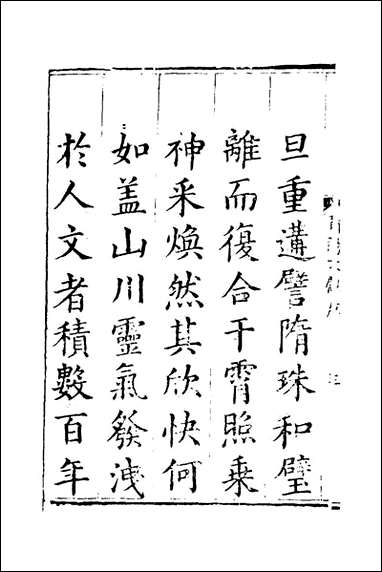 旦重遘譬隋珠和璧
離而復合干霄照乗
神采焕然其欣快何
如盖山川靈氣發洩
扵人文者積數百年